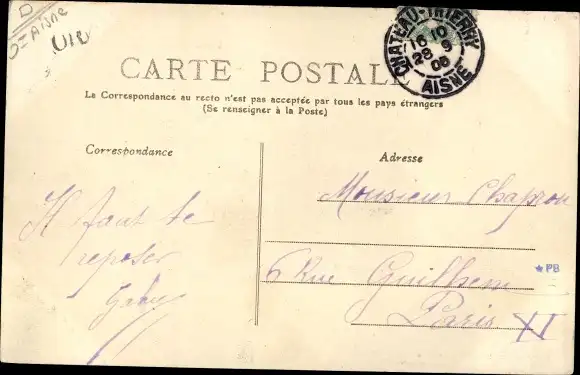 D
Dt Aisne
CHATEAU-THIERRY
16 10
28 9
06
AISNE
CARTE POSTALE
La Correspondance au recto n'est pas acceptée par tous les pays étrangers
(Se renseigner à la Poste)
Correspondance
Il faut te
reposer
Gaby
Adresse
Monsieur Chapron
6 Rue Guilhem
Paris XI
★ PB